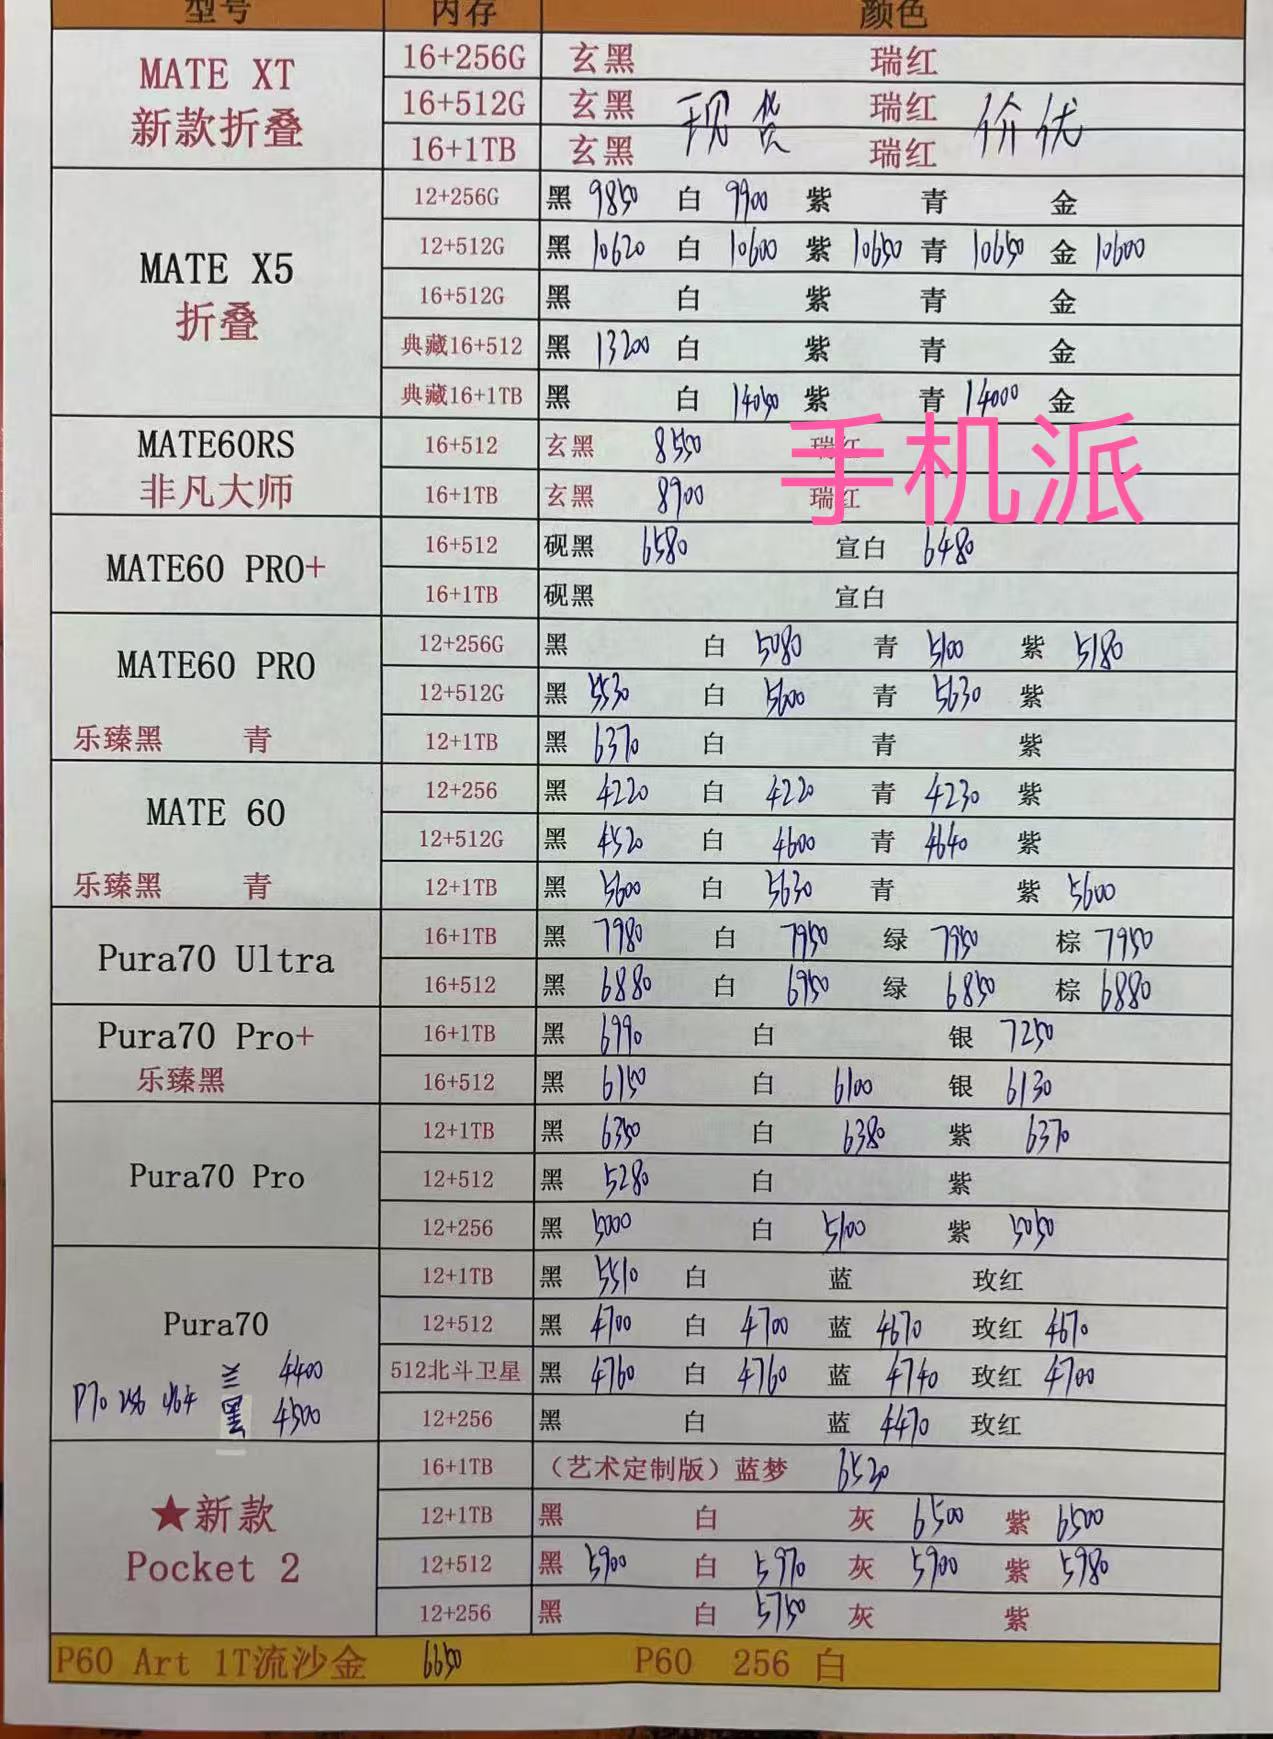 型号 内存 颜色
MATE XT
新款折叠
16+256G 玄黑 瑞红
16+512G 玄黑 瑞红
现货 价优
16+1TB 玄黑 瑞红
MATE X5
折叠
12+256G 黑 9850 白 9900 紫 青 金
12+512G 黑 10620 白 10600 紫 10650 青 10650 金 10600
16+512G 黑 白 紫 青 金
典藏16+512 黑 13200 白 紫 青 金
典藏16+1TB 黑 白 14050 紫 青 14000 金
手机派
MATE60RS
非凡大师
16+512 玄黑 8550 瑞红
16+1TB 玄黑 8900 瑞红
MATE60 PRO+
16+512 砚黑 6580 宣白 6480
16+1TB 砚黑 宣白
MATE60 PRO
乐臻黑 青
12+256G 黑 白 5080 青 5100 紫 5180
12+512G 黑 5530 白 5600 青 5630 紫
12+1TB 黑 6370 白 青 紫
MATE 60
乐臻黑 青
12+256 黑 4220 白 4220 青 4230 紫
12+512G 黑 4520 白 4600 青 4640 紫
12+1TB 黑 5600 白 5630 青 紫 5600
Pura70 Ultra
16+1TB 黑 7980 白 7950 绿 7950 棕 7950
16+512 黑 6880 白 6950 绿 6850 棕 6880
Pura70 Pro+
乐臻黑
16+1TB 黑 6990 白 银 7250
16+512 黑 6150 白 6100 银 6130
Pura70 Pro
12+1TB 黑 6350 白 6380 紫 6370
12+512 黑 5280 白 紫
12+256 黑 5000 白 5100 紫 5050
Pura70
12+1TB 黑 5510 白 蓝 玫红
12+512 黑 4700 白 4700 蓝 4670 玫红 4670
512北斗卫星 黑 4760 白 4760 蓝 4740 玫红 4700
12+256 黑 白 蓝 4470 玫红
P70 256 兰 4400
黑 4500
★新款
Pocket 2
16+1TB （艺术定制版）蓝梦 6520
12+1TB 黑 白 灰 6500 紫 6500
12+512 黑 5900 白 5970 灰 5900 紫 5980
12+256 黑 白 5750 灰 紫
P60 Art 1T流沙金 6650 P60 256 白